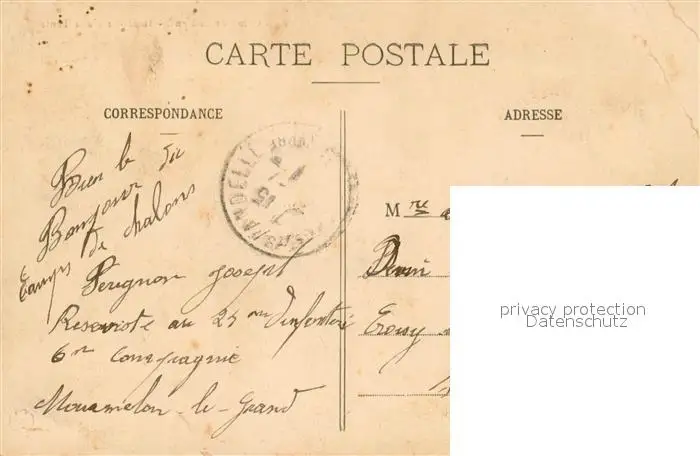 CARTE POSTALE
CORRESPONDANCE
ADRESSE
Bien le
Bonjour du
Camps de chalons
Perignon Joseph
Reserviste au 25 me D'infanterie
6me Compagnie
Mourmelon-le-Grand
M
privacy protection
Datenschutz